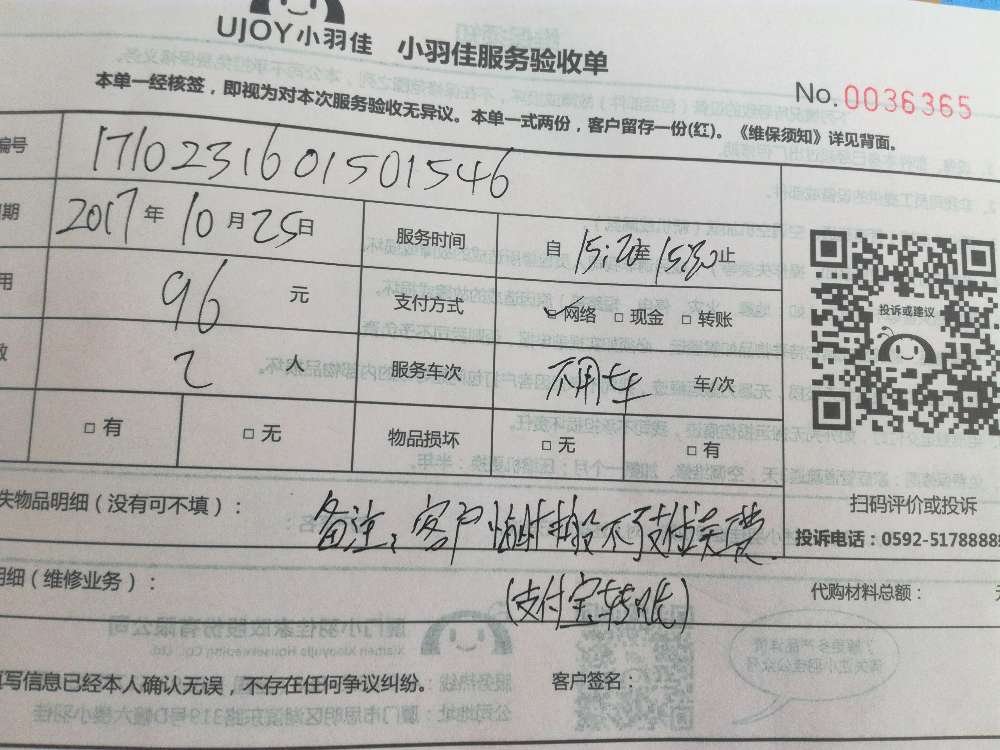 UJOY小羽佳 小羽佳服务验收单
No.0036365
本单一经核签，即视为对本次服务验收无异议。本单一式两份，客户留存一份(红)。《维保须知》详见背面。
编号 1710231601501546
期 2017年10月25日 服务时间 自 15:20至 15:30止
用 96 元 支付方式 网络 □现金 □转账
数 2 人 服务车次 不用车 车/次
□有 □无 物品损坏 □无 □有
投诉或建议
扫码评价或投诉
投诉电话：0592-5178888
失物品明细（没有可不填）：
备注：客户临时搬不了支付误费
明细（维修业务）：
(支付宝转账)
代购材料总额：
填写信息已经本人确认无误，不存在任何争议纠纷。 客户签名：